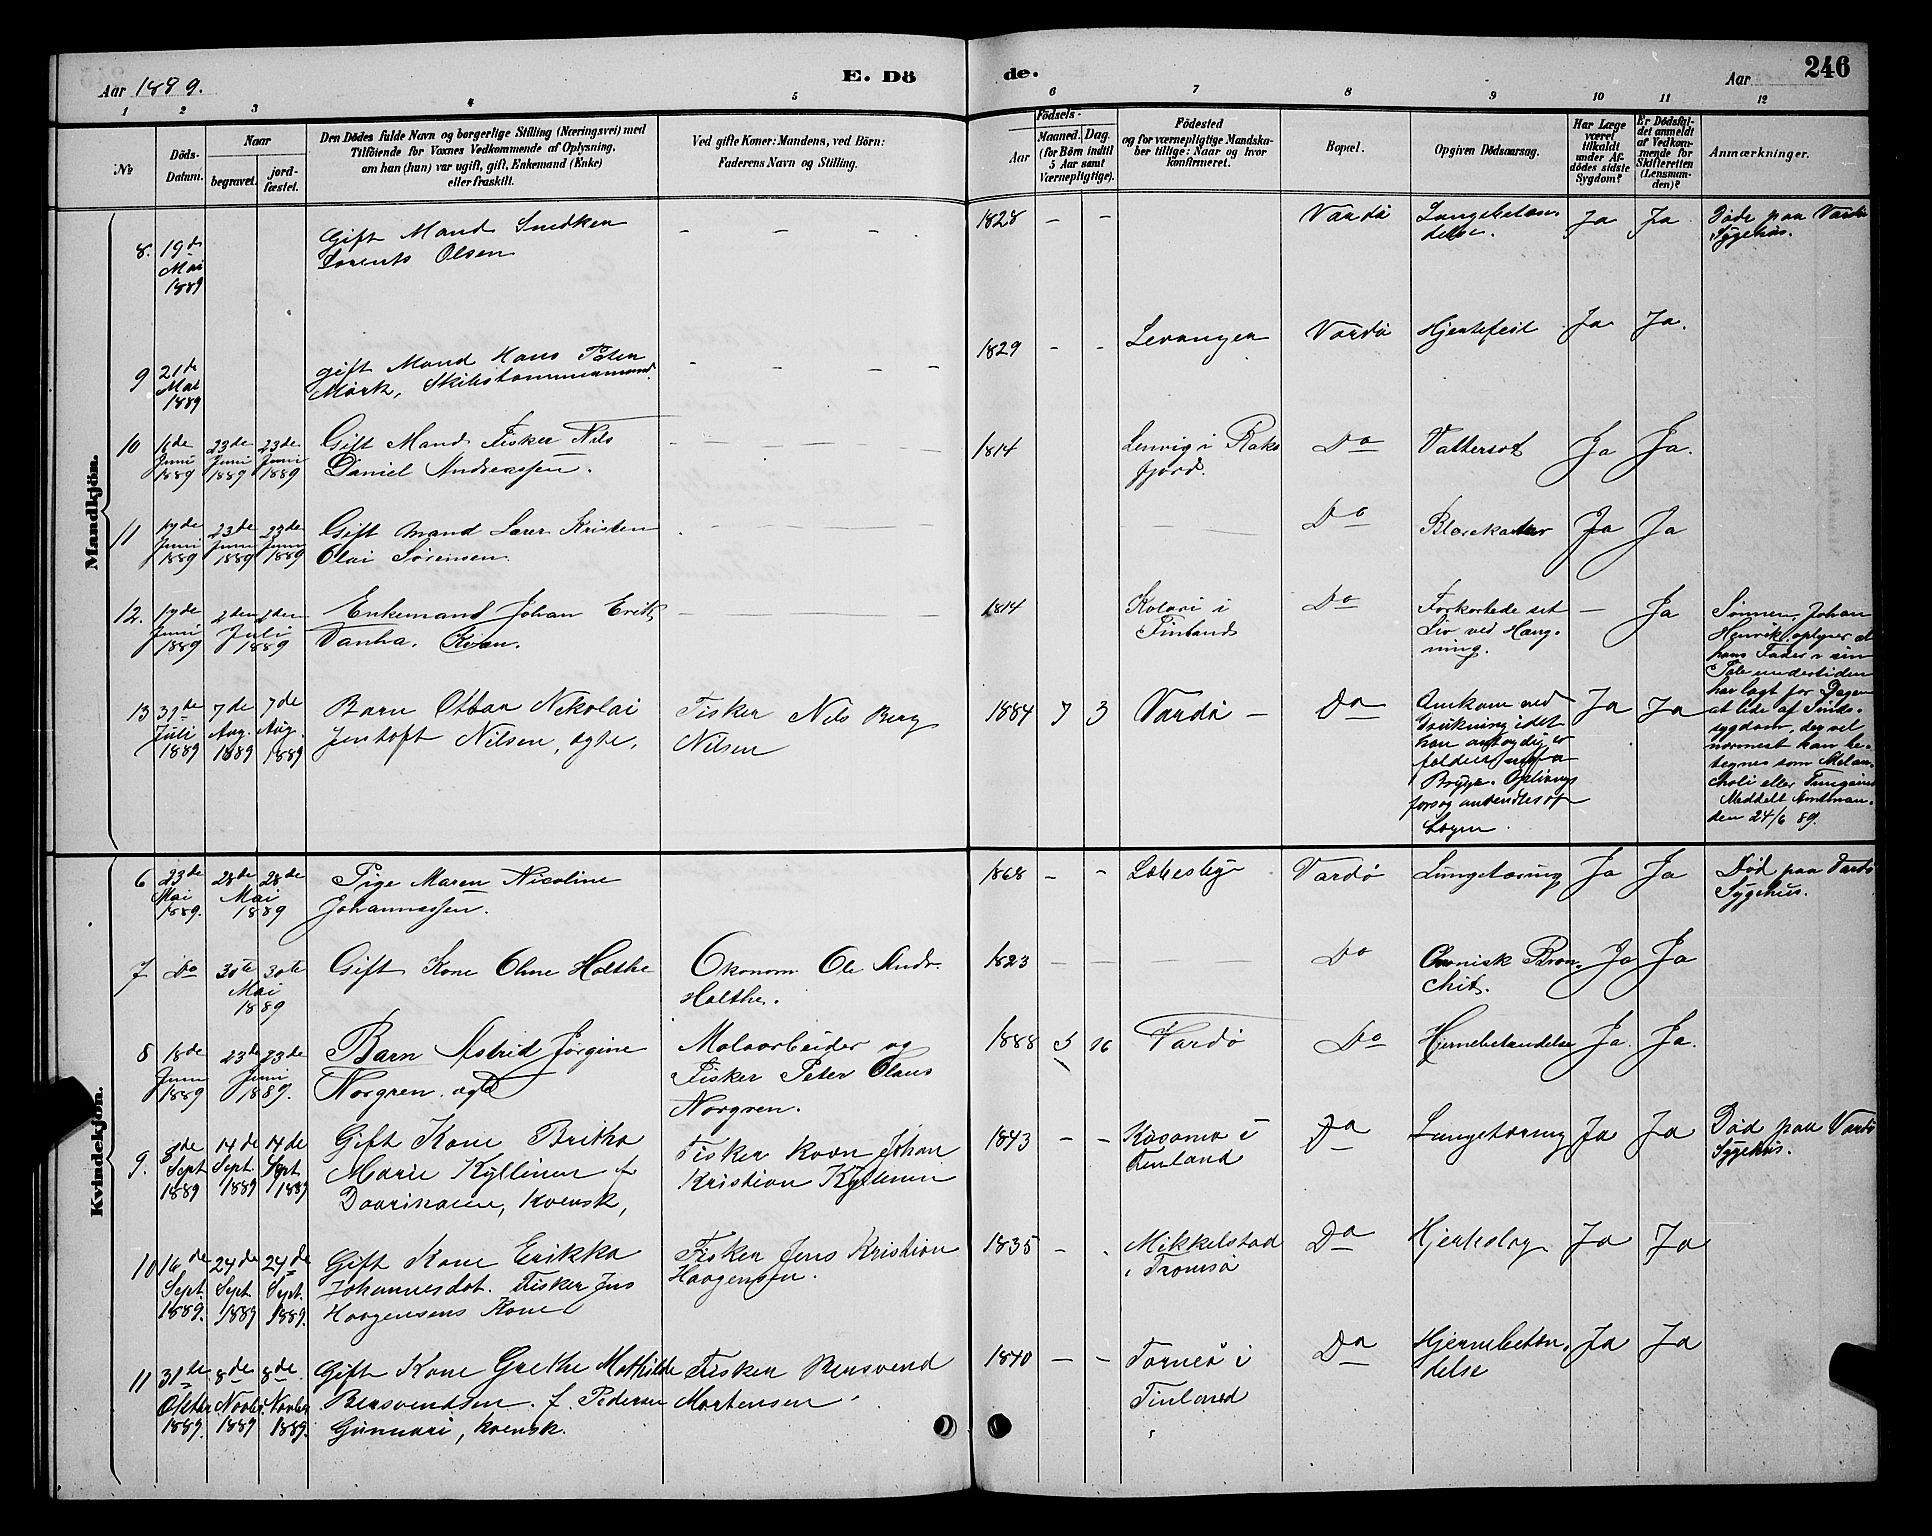 Aar 1889.
E. Dö
de.
Aar
246
1 2 3 4 5
6 7 8 9 10 11 12
№
Döds-Datum.
Naar
begravet.
jord-fæstet.
Den Dödes fulde Navn og borgerlige Stilling (Næringsvei) med
Tilföiende for Voxnes Vedkommende af Oplysning,
om han (hun) var ugift, gift, Enkemand (Enke)
eller fraskilt.
Ved gifte Koner: Mandens, ved Börn:
Faderens Navn og Stilling.
Födsels-
Aar
Maaned. Dag.
(for Börn indtil
5 Aar samt
Værnepligtige).
Födested
og for værnepligtige Mandska-
ber tillige: Naar og hvor
konfirmeret.
Bopæl.
Opgiven Dödsaarsag.
Har Læge
været
tilkaldt
under Af-
dödes sidste
Sygdom?
Er Dödsfal-
det anmeldt
af Vedkom-
mende for
Skifteretten
(Lensman-
den)?
Anmærkninger.
Mandkjön.
8. 19de Mai 1889
Gift Mand Snedker
Lorents Olsen
1828 - -
Vardö
Lungebetæn
delse.
Ja Ja
Døde paa Vardö
Sygehus.
9 21de Mai 1889
gift Mand Hans Peter
Mørk, Skibstømmermand.
1829 - -
Levanger
Vardö
Hjertefeil
Ja Ja.
10 6de Juni 1889 23de Juni 1889 23de Juni 1889
Gift Mand Fisker Nils
Daniel Andreassen.
1814
Lenvig i
fjord.
Do
Vattersot
Ja Ja.
11 17de Juni 1889 23de Juni 1889 23de Juni 1889
Gift Mand Kristen
Olai Sørensen.
Do
Blærekatar
Ja Ja
12. 17de Juni 1889 2den 2den Juli 1889
Enkemand Johan Erik
Vanha. Kvæn.
1814
Kolari i
Finland
Do
Forkortede sit
Liv ved Hæng-
ning.
- Ja
Sønnen, Johan
Henrik, oplyser at
hans Fader i sin
Tale undertiden
har lagt for Dagen
at lide af Sinds-
sygdom, der vel
nærmest kan be-
tegnes som Melan-
choli eller Tungsind
Meddelt Amtman-
den 24/6 89.
13 31te Juli 1889 7de Aug. 1889 7de Aug. 1889
Barn Ottar Nikolai
Jentoft Nilsen, ægte,
Fisker Nils Berg
Nilsen
1884 7 3
Vardö -
Do
Omkom ved
Drukning idet
han antagelig er
falden ud fra
Brygge. Oplivnings
forsøg anvendtes af
Lægen.
Ja Ja
Kvindekjön.
6 23de Mai 1889. 28de 28de Mai 1889
Pige Maren Nicoline
Johannessen.
1868 - -
Lebesby
Vardö
Lungetæring
Ja Ja
Død paa Vardö
Sygehus.
7 Do 30te 30te Mai 1889
Gift Kone Oline Holthe
Økonom Ole Andr.
Holthe.
1823
Do
Cronisk Bron-
chit.
Ja Ja
8 18de Juni 1889 23de 23de Juni 1889.
Barn Astrid Jørgine
Norgren. ægte
Moloarbeider og
Fisker Peter Claus
Norgren.
1888 5 16
Vardö
Do
Hjernebetændelse
Ja. Ja.
9. 8de Sept 1889 14de Sept. 1889 14de Sept 1889
Gift Kone Britha
Marie Kyllinen f
kvensk,
Fisker Kvæn Johan
Kristian Kyllinen
1843 - -
Kasamo i
Finland
Do
Lungetæring
Ja Ja
Død paa Vardö
Sygehus.
10 16de Sept. 1889. 24de Sept 1889 24de Sept. 1889.
Gift Kone Erikka
Johannesdot. Fisker Jens
Haagensens Kone
Fisker Jens Kristian
Haagensen.
1835 -
Mikkelstad
i Tromsö
Do
Hjerteslag
Ja Ja
11 31te Oktbr 1889. 8de Novbr. 1889 8de Novbr 1889.
Gift Kone Grethe Mathilde
Bersvendsen. f. Pedersen
Gunnari, kvensk.
Fisker Bersvend
Mortensen
1840 - -
Torneå i
Finland
Do
Hjernebetæn-
delse
Ja Ja